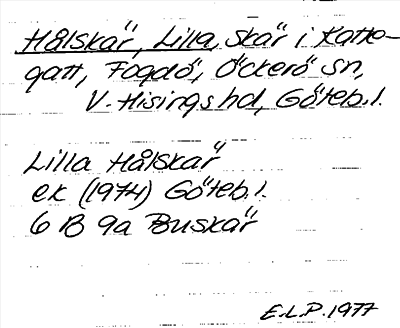 Hålskär, Lilla, skär i Katte-
gatt, Fogdö, Öckerö sn,
V. Hisings hd, Göteb. l.
Lilla Hålskär
ek (1974) Göteb. l.
6 B 9a Buskär
E.L.P. 1977